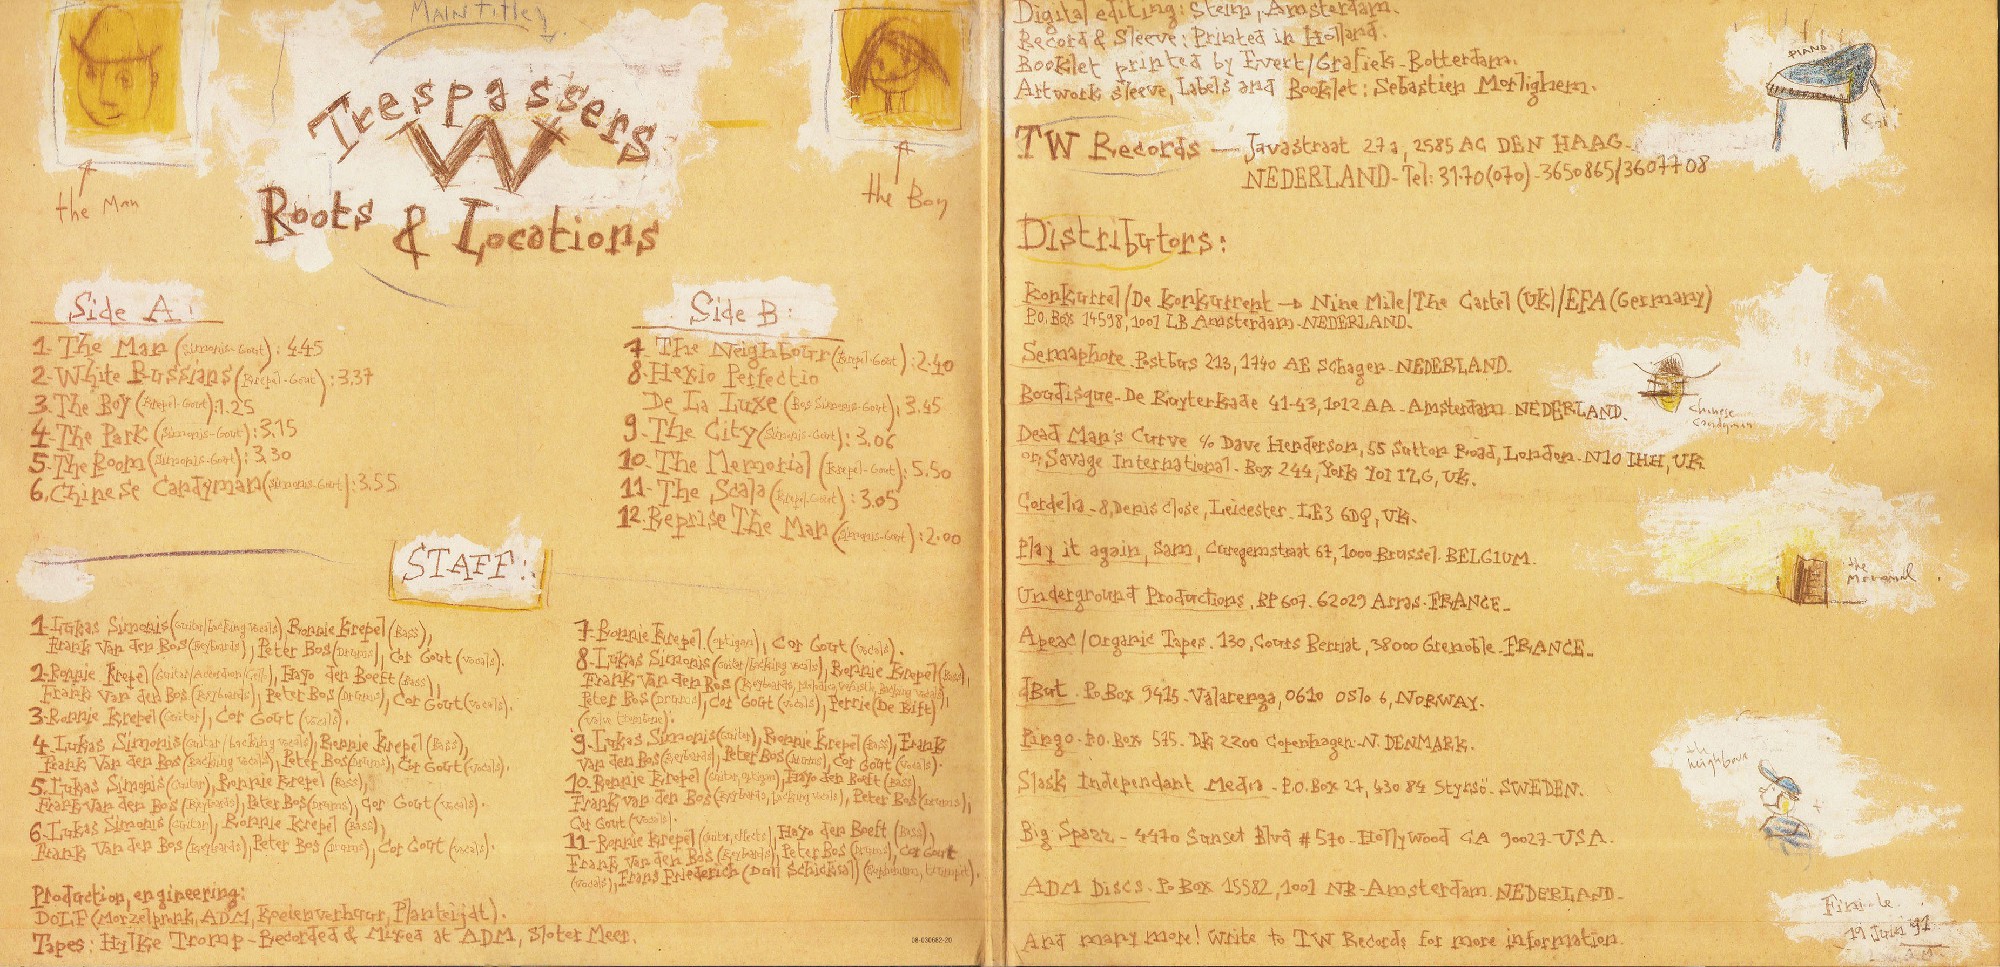 MAIN Titles
the Man
the Boy
Trespassers
W
Roots & Locations
Side A:
1. The Man (Simonis-Gout): 4.45
2. White Russians (Krepel-Gout): 3.37
3. The Boy (Krepel-Gout): 1.25
4. The Park (Simonis-Gout): 3.15
5. The Room (Simonis-Gout): 3.30
6. Chinese Candyman (Simonis-Gout): 3.55
Side B:
7. The Neighbour (Krepel-Gout): 2.40
8. Hexio Perfectio
De La Luxe (Bos Simonis-Gout), 3.45
9. The City (Simonis-Gout): 3.06
10. The Memorial (Krepel-Gout): 5.50
11. The Scala (Krepel-Gout): 3.05
12. Reprise The Man (Simonis-Gout): 2.00
STAFF:
1. Lukas Simonis (Guitar/backing vocals) Ronnie Krepel (Bass),
Frank Van den Bos (Keyboards), Peter Bos (Drums), Cor Gout (vocals).
2. Ronnie Krepel (Guitar/Accordion/Cello), Hayo den Boeft (Bass),
Frank Van den Bos (Keyboards), Peter Bos (Drums), Cor Gout (vocals).
3. Ronnie Krepel (Guitar), Cor Gout (vocals).
4. Lukas Simonis (Guitar/backing vocals), Ronnie Krepel (Bass),
Frank Van den Bos (Backing vocals), Peter Bos (Drums), Cor Gout (vocals).
5. Lukas Simonis (Guitar), Ronnie Krepel (Bass),
Frank Van den Bos (Keyboards), Peter Bos (Drums), Cor Gout (vocals).
6. Lukas Simonis (Guitar), Ronnie Krepel (Bass),
Frank Van den Bos (Keyboards), Peter Bos (Drums), Cor Gout (vocals).
7. Ronnie Krepel (optigan), Cor Gout (vocals).
8. Lukas Simonis (Guitar/backing vocals), Ronnie Krepel (Bass),
Frank Van den Bos (Keyboards, melodica, whistle, backing vocals),
Peter Bos (Drums), Cor Gout (vocals), Perrie (De Bift)
(valve trombone).
9. Lukas Simonis (Guitar), Ronnie Krepel (Bass), Frank
Van den Bos (Keyboards), Peter Bos (Drums), Cor Gout (vocals).
10. Ronnie Krepel (Guitar, optigan), Hayo den Boeft (Bass),
Frank van den Bos (Keyboards, backing vocals), Peter Bos (Drums),
Cor Gout (vocals).
11. Ronnie Krepel (Guitar, effects), Hayo den Boeft (Bass),
Frank Van den Bos (Keyboards), Peter Bos (Drums), Cor Gout
(vocals), Frans Friederich (Dull Schicksal) (Euphonium, trumpet).
Production, engineering:
DOLF (Morzelpronk, ADM, Koeienverhuur, Planteijdt).
Tapes: Hylke Tromp - Recorded & Mixed at ADM, Sloter Meer.
08-030682-20
Digital editing: Steim, Amsterdam.
Record & Sleeve: Printed in Holland.
Booklet printed by Evert/Grafiek-Rotterdam.
Artwork sleeve, Labels and Booklet: Sebastien Morlighem.
PIANO
TW Records — Javastraat 27a, 2585 AG DEN HAAG.
NEDERLAND - Tel: 31.70 (070) - 3650865/3607708
Distributors:
Konkurrel/De Konkurrent → Nine Mile/The Cartel (UK)/EFA (Germany)
P.O. Box 14598, 1001 LB Amsterdam - NEDERLAND.
Semaphore. Postbus 213, 1740 AE Schagen - NEDERLAND.
Boudisque - De Ruyterkade 41-43, 1012 AA - Amsterdam NEDERLAND.
Chinese
Candyman
Dead Man's Curve c/o Dave Henderson, 55 Sutton Road, London - N10 1HH, UK
or, Savage International - Box 244, York YO1 1ZG, UK.
Cordelia - 8, Denis Close, Leicester - LE3 6DQ, UK.
Play it again, Sam, Curegemstraat 67, 1000 Brussel. BELGIUM.
the
Memorial
Underground Productions, BP 607. 62029 Arras - FRANCE.
Apeac/Organic Tapes. 130, Cours Berriat, 38000 Grenoble - FRANCE.
dBut. Po Box 9415. Valarenga, 0610 Oslo 6, NORWAY.
Pingo. P.O. Box 575. DK 2200 Copenhagen - N. DENMARK.
the
neighbour
Slask Independant Media - P.O. Box 27, 430 84 Styrsö - SWEDEN.
Big Spazz - 4470 Sunset Blvd # 570 - Hollywood CA 90027 - USA.
ADM Discs. Po Box 15582, 1001 NB - Amsterdam. NEDERLAND.
And many more! Write to TW Records for more information.
Fini le
19 Juin 91